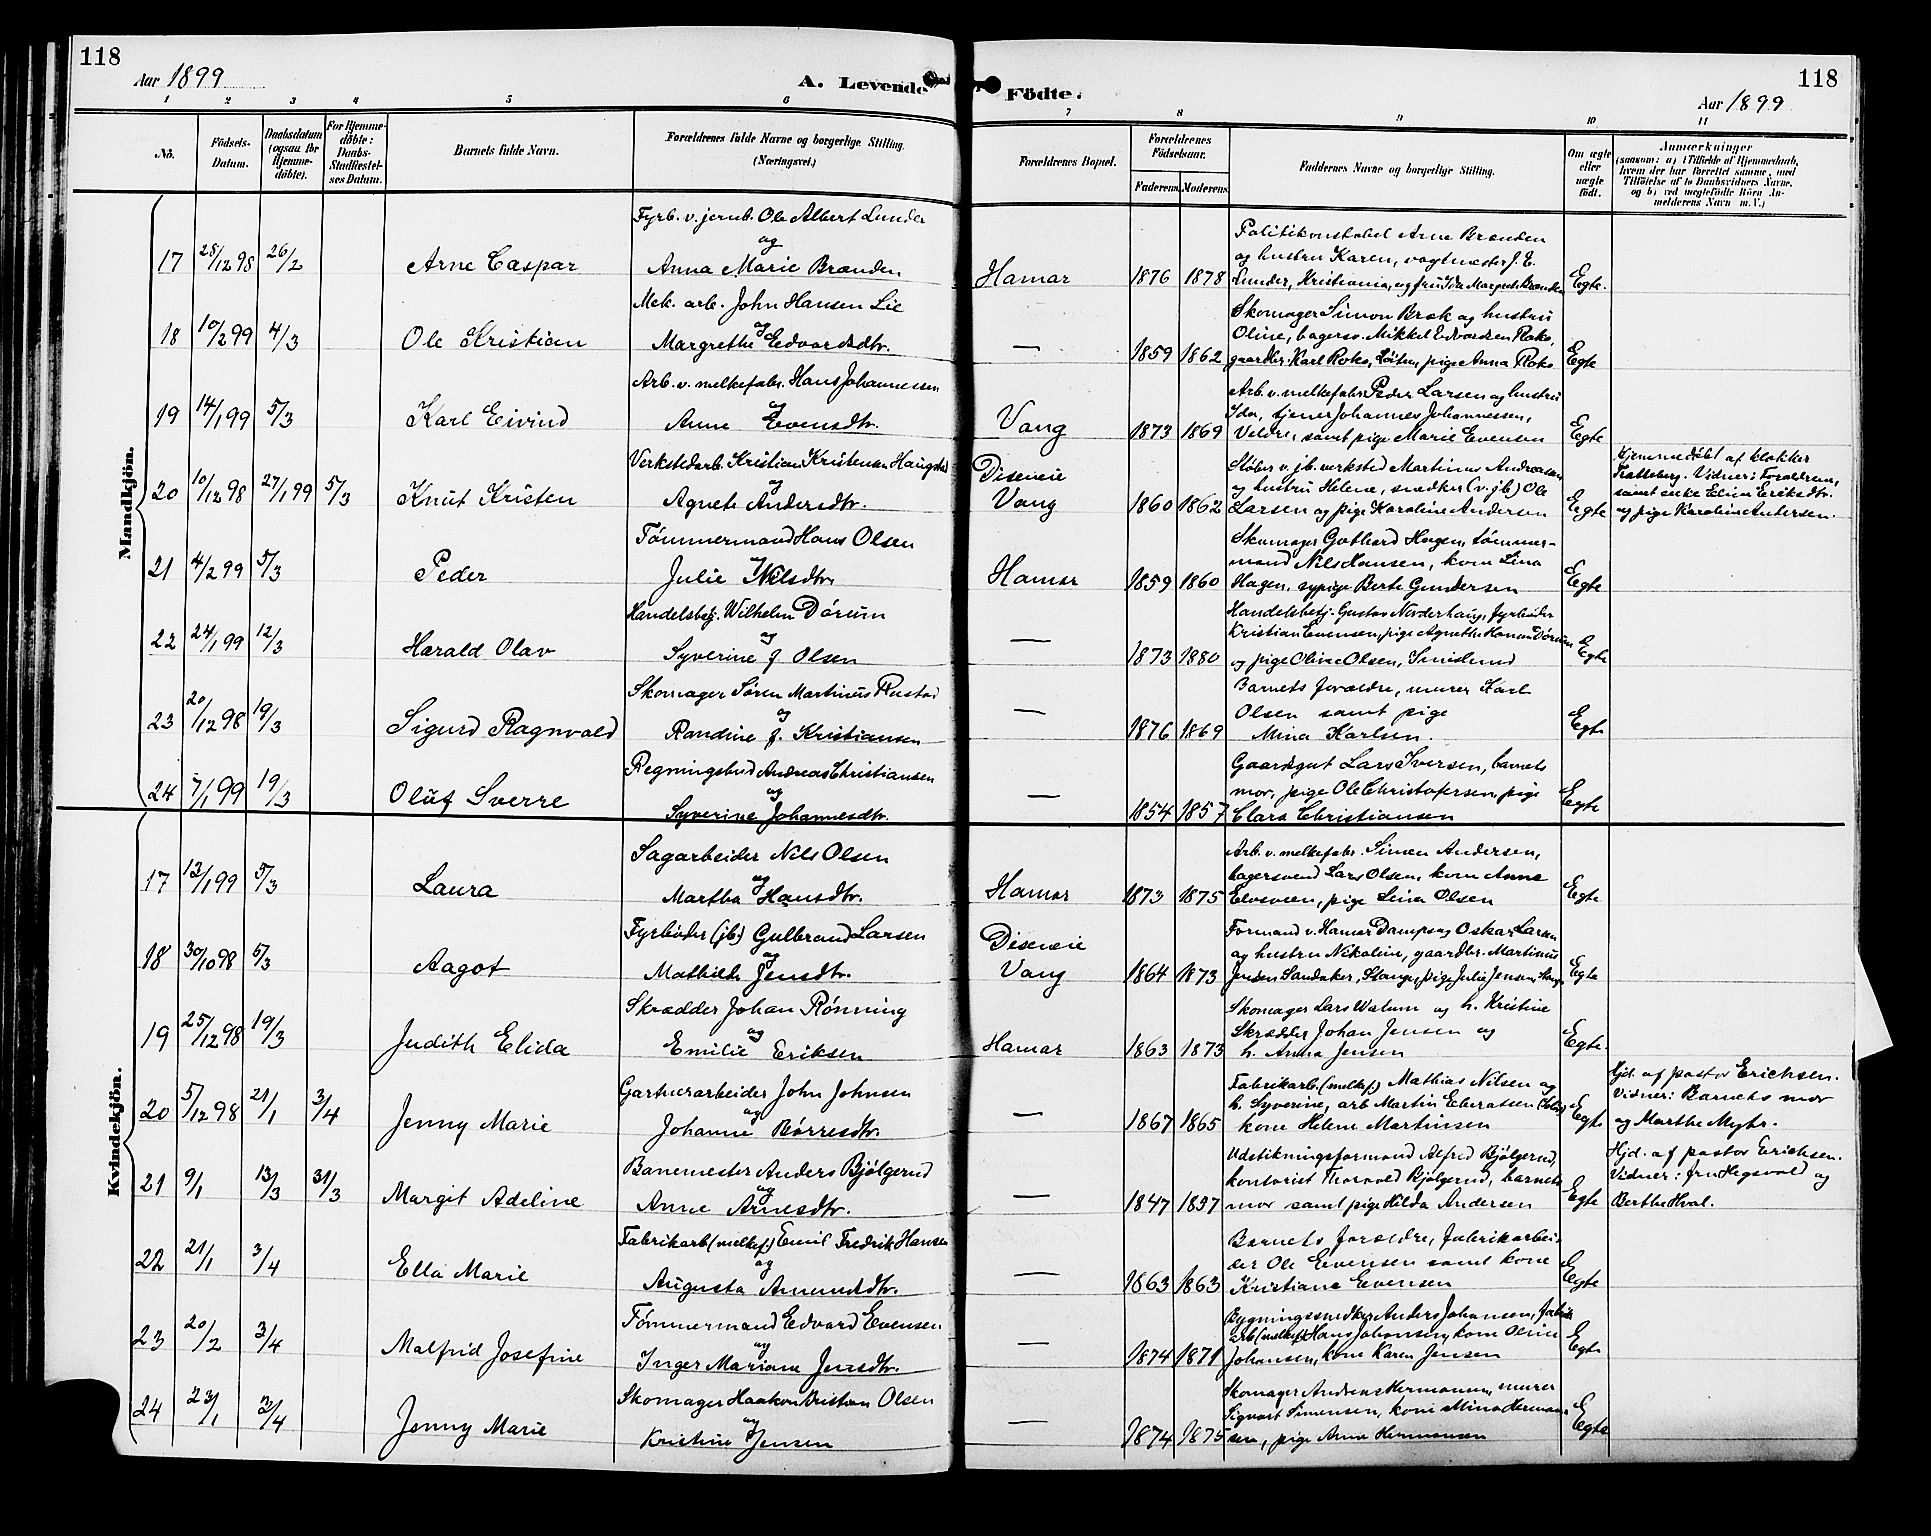 118
Aar 1899
A. Levende
Födte.
118
Aar 1899
1 2 3 4 5 6 7 8 9 10 11
No.
Födsels-Datum.
Daabsdatum (ogsaa for Hjemme-döbte).
For Hjemme-döbte: Daabs-Stadfæstel-ses Datum.
Barnets fulde Navn.
Forældrenes fulde Navne og borgerlige Stilling. (Næringsvei.)
Forældrenes Bopæl.
Forældrenes Födselsaar.
Faderens. Moderens.
Faddernes Navne og borgerlige Stilling.
Om ægte eller uægte födt.
Anmærkninger
(saasom: a) i Tilfælde af Hjemmedaab, hvem der har forrettet samme, med Tilföielse af to Daabsvidners Navne, og b) ved uegtefödte Börn An-melderens Navn m. V.)
Mandkjön.
Fyrb. v. jernb. Ole Albert Lunder
og
17 28/12 98 26/2 Arne Caspar Anna Marie Brænden Hamar 1876 1878
Politikonstabel Arne Brænden
og hustru Karen, vagtmester J. E.
Lunder, Kristiania, og frk Ida Margrete Brænden Egte.
Mek. arb. John Hansen Lie
og
18 10/2 99 4/3 Ole Kristian Margrethe Edvardsdtr. — 1859 1862
Skomager Simon Bræk og hustru
Oline, bagersv. Mikkel Edvardsen Roko,
gaardbr. Karl Roko, Löiten, pige Anna Roko Egte
Arb. v. melkefabr. Hans Johannessen
og
19 14/1 99 5/3 Karl Eivind Anne Evensdtr. Vang 1873 1869
Arb. v. melkefabr. Peder Larsen og hustru
Ida, tjener Johannes Johannessen,
Veldre, samt pige Marie Evensen Egte
Verkstedarb. Kristian Kristensen Haugstad
og
20 10/12 98 27/1 99 5/3 Knut Kristen Agnete Andersdtr. Diseneie Vang 1860 1862
Støber v. jb. verksted Martinus Andreassen
og hustru Helene, snedker (v. jb) Ole
Larsen og pige Karoline Andersen Egte
Hjemmedøbt af klokker
Tratteberg. Vidner: Forældrene,
samt enke Eline Eriksdtr.
og pige Karoline Andersen.
Tømmermand Hans Olsen
og
21 4/2 99 5/3 Peder Julie Nilsdtr. Hamar 1859 1860
Skomager Gothard Hagen, tømmer-
mand Nils Hansen, kone Lina
Hagen, sypige Berte Gundersen Egte
Handelsbetj. Wilhelm Dørum
og
22 24/1 99 12/3 Harald Olav Syverine f. Olsen — 1873 1880
Handelsbetj. Gustav Norderhaug, fyrbøder
Kristian Evensen, pige Agnethe Hansen Dørum
og pige Oline Olsen, Smidlund Egte
Skomager Søren Martinus Rustad
og
23 20/12 98 19/3 Sigurd Ragnvald Randine f. Kristiansen — 1876 1869
Barnets forældre, murer Karl
Olsen samt pige
Mina Karlsen. Egte
Regningsbud Andreas Christiansen
og
24 7/1 99 19/3 Oluf Sverre Syverine Johannesdtr. — 1854 1857
Gaardsgut Lars Iversen, barnets
mor, pige Ole Christofersen, pige
Clara Christiansen Egte
Kvindekjön.
Sagarbeider Nils Olsen
og
17 12/1 99 5/3 Laura Martha Hansdtr. Hamar 1873 1875
Arb. v. melkefabr. Simen Andersen,
bagersvend Lars Olsen, kone Anne
Elvsveen, pige Lina Olsen Egte
Fyrbøder (jb.) Gulbrand Larsen
og
18 30/10 98 5/3 Aagot Mathilde Jensdtr. Diseneie Vang 1864 1873
Formand v. Hamar Dampsag Oskar Larsen
og hustru Nikoline, gaardbr. Martinus
Jensen Sandaker, Stange, pige Julie Jensen, Stange Egte
Skrædder Johan Rønning
og
19 25/12 98 19/3 Judith Elida Emilie Eriksen Hamar 1863 1873
Skomager Lars Watum og h. Kristine
Skrædder Johan Jensen og
h. Anna Jensen Egte.
Gartnerarbeider John Johnsen
og
20 5/12 98 21/1 3/4 Jenny Marie Johanne Børresdtr. — 1867 1865
Fabrikarb. (melkef.) Mathias Nilsen og
h. Syverine, arb Martin
kone Helene Martinsen Egte
Hjd. af pastor Erichsen.
Vidner: Barnets mor
og Marthe Myhr.
Banemester Anders Bjølgerud
og
21 9/1 13/3 31/3 Margit Adeline Anne Arnesdtr. — 1847 1857
Udstikningsformand Alfred Bjølgerud,
kontorist Thorvald Bjølgerud, barnets
mor samt pige Hilda Andersen Egte
Hjd. af pastor Erichsen.
Vidner: fru Hegsvold og
Berthe Hval.
Fabrikarb (melkef.) Emil Fredrik Hansen
og
22 21/1 3/4 Ella Marie Augusta Amundsdtr. — 1863 1863
Barnets forældre, fabrikarbei-
der Ole Evensen samt kone
Kristiane Evensen Egte
Tømmermand Edvard Evensen
og
23 20/2 3/4 Malfrid Josefine Inger Mariane Jensdtr. — 1874 1871
Bygningssnedker Anders Johansen, fabrik
arb (melkef.) Hans Johansen, kone Oline
Johansen, kone Karen Jensen Egte
Skomager Haakon Kristian Olsen
og
24 23/1 3/4 Jenny Marie Kristine Jensen — 1874 1875
Skomager Andreas Hermansen, murer
Sigvart Simensen, kone Mina Herman-
sen, pige Anna Hermansen Egte